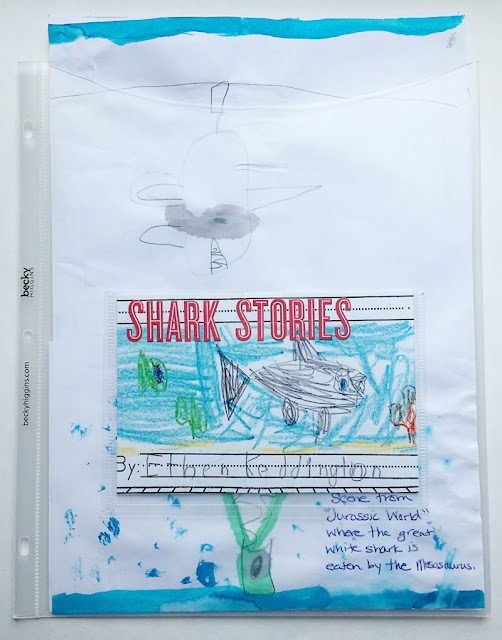 SHARK STORIES
By: Ethen Keddington
Scene from
"Jurassic World"
where the great
white shark is
eaten by the Mosasaurus.
becky
HIGGINS
beckyhiggins.com